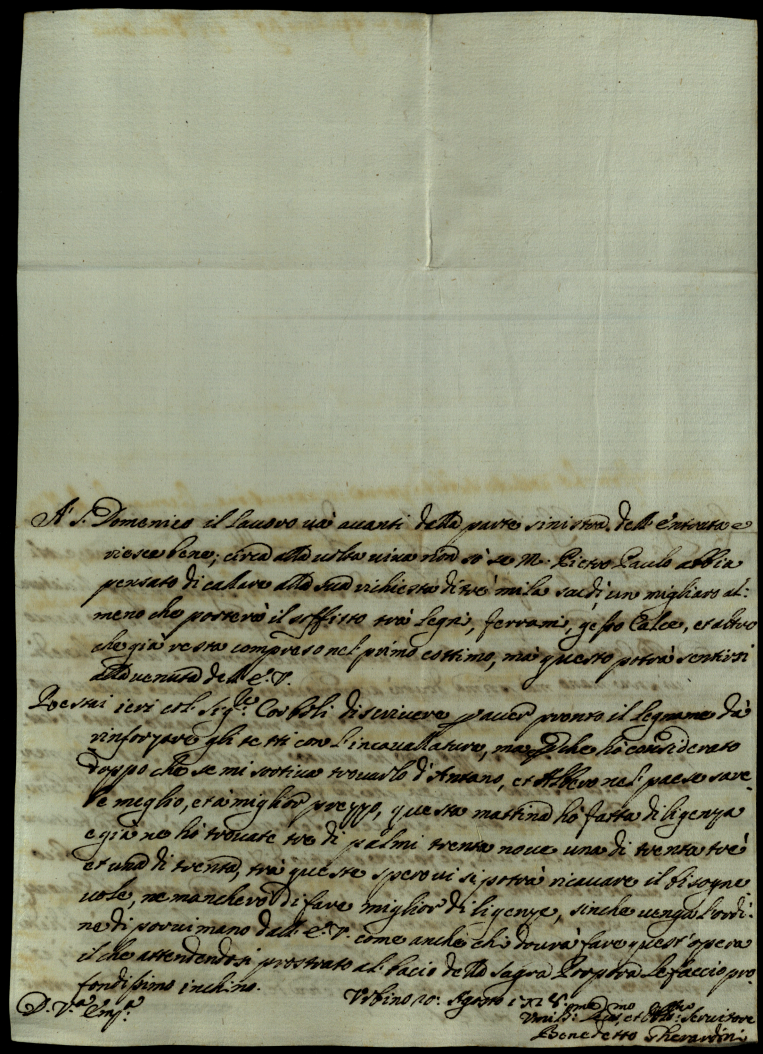 A' S. Domenico il lavoro và avanti dalla parte sinistra dell'entrata e
riesce bene; circa alla volta vina non sò se M. Pietro Paulo abbia
pensato di callare alla sua richiesta di trè mila scudi un migliaro al:
meno che porterà il soffitto trà legni, ferrami, gesso Calce, et altro
che già resta compreso nel primo cottimo, mà questo potrà sentirsi
alla venuta dell' E. V.
Restai ieri col Sig.re Corboli di scrivere p aver pronto il legname dà
rinforzare gli tetti con l'incavallatura, ma perche hò considerato
doppo che se mi sortiva trovarlo d'Antano, et Albero nel paese sare-
be meglio, et à miglior prezzo, questa mattina hò fatta diligenza
e già ne hò trovate tre di palmi trenta nove una di trenta trè
et una di trenta, trà queste spero vi si potrà ricavare il bisogne
vole, ne mancherò di fare miglior diligenze, sinche venga l'ordi:
ne di porvi mano dall' E. V. come anche chi dovrà fare quest'opera
il che attendendosi prostrato al bacio della Sagra Porpora le faccio pro
fondissimo inchino.
Urbino 20: Agosto
D. V.a Em.a
et Servitore
Benedetto Gherardini